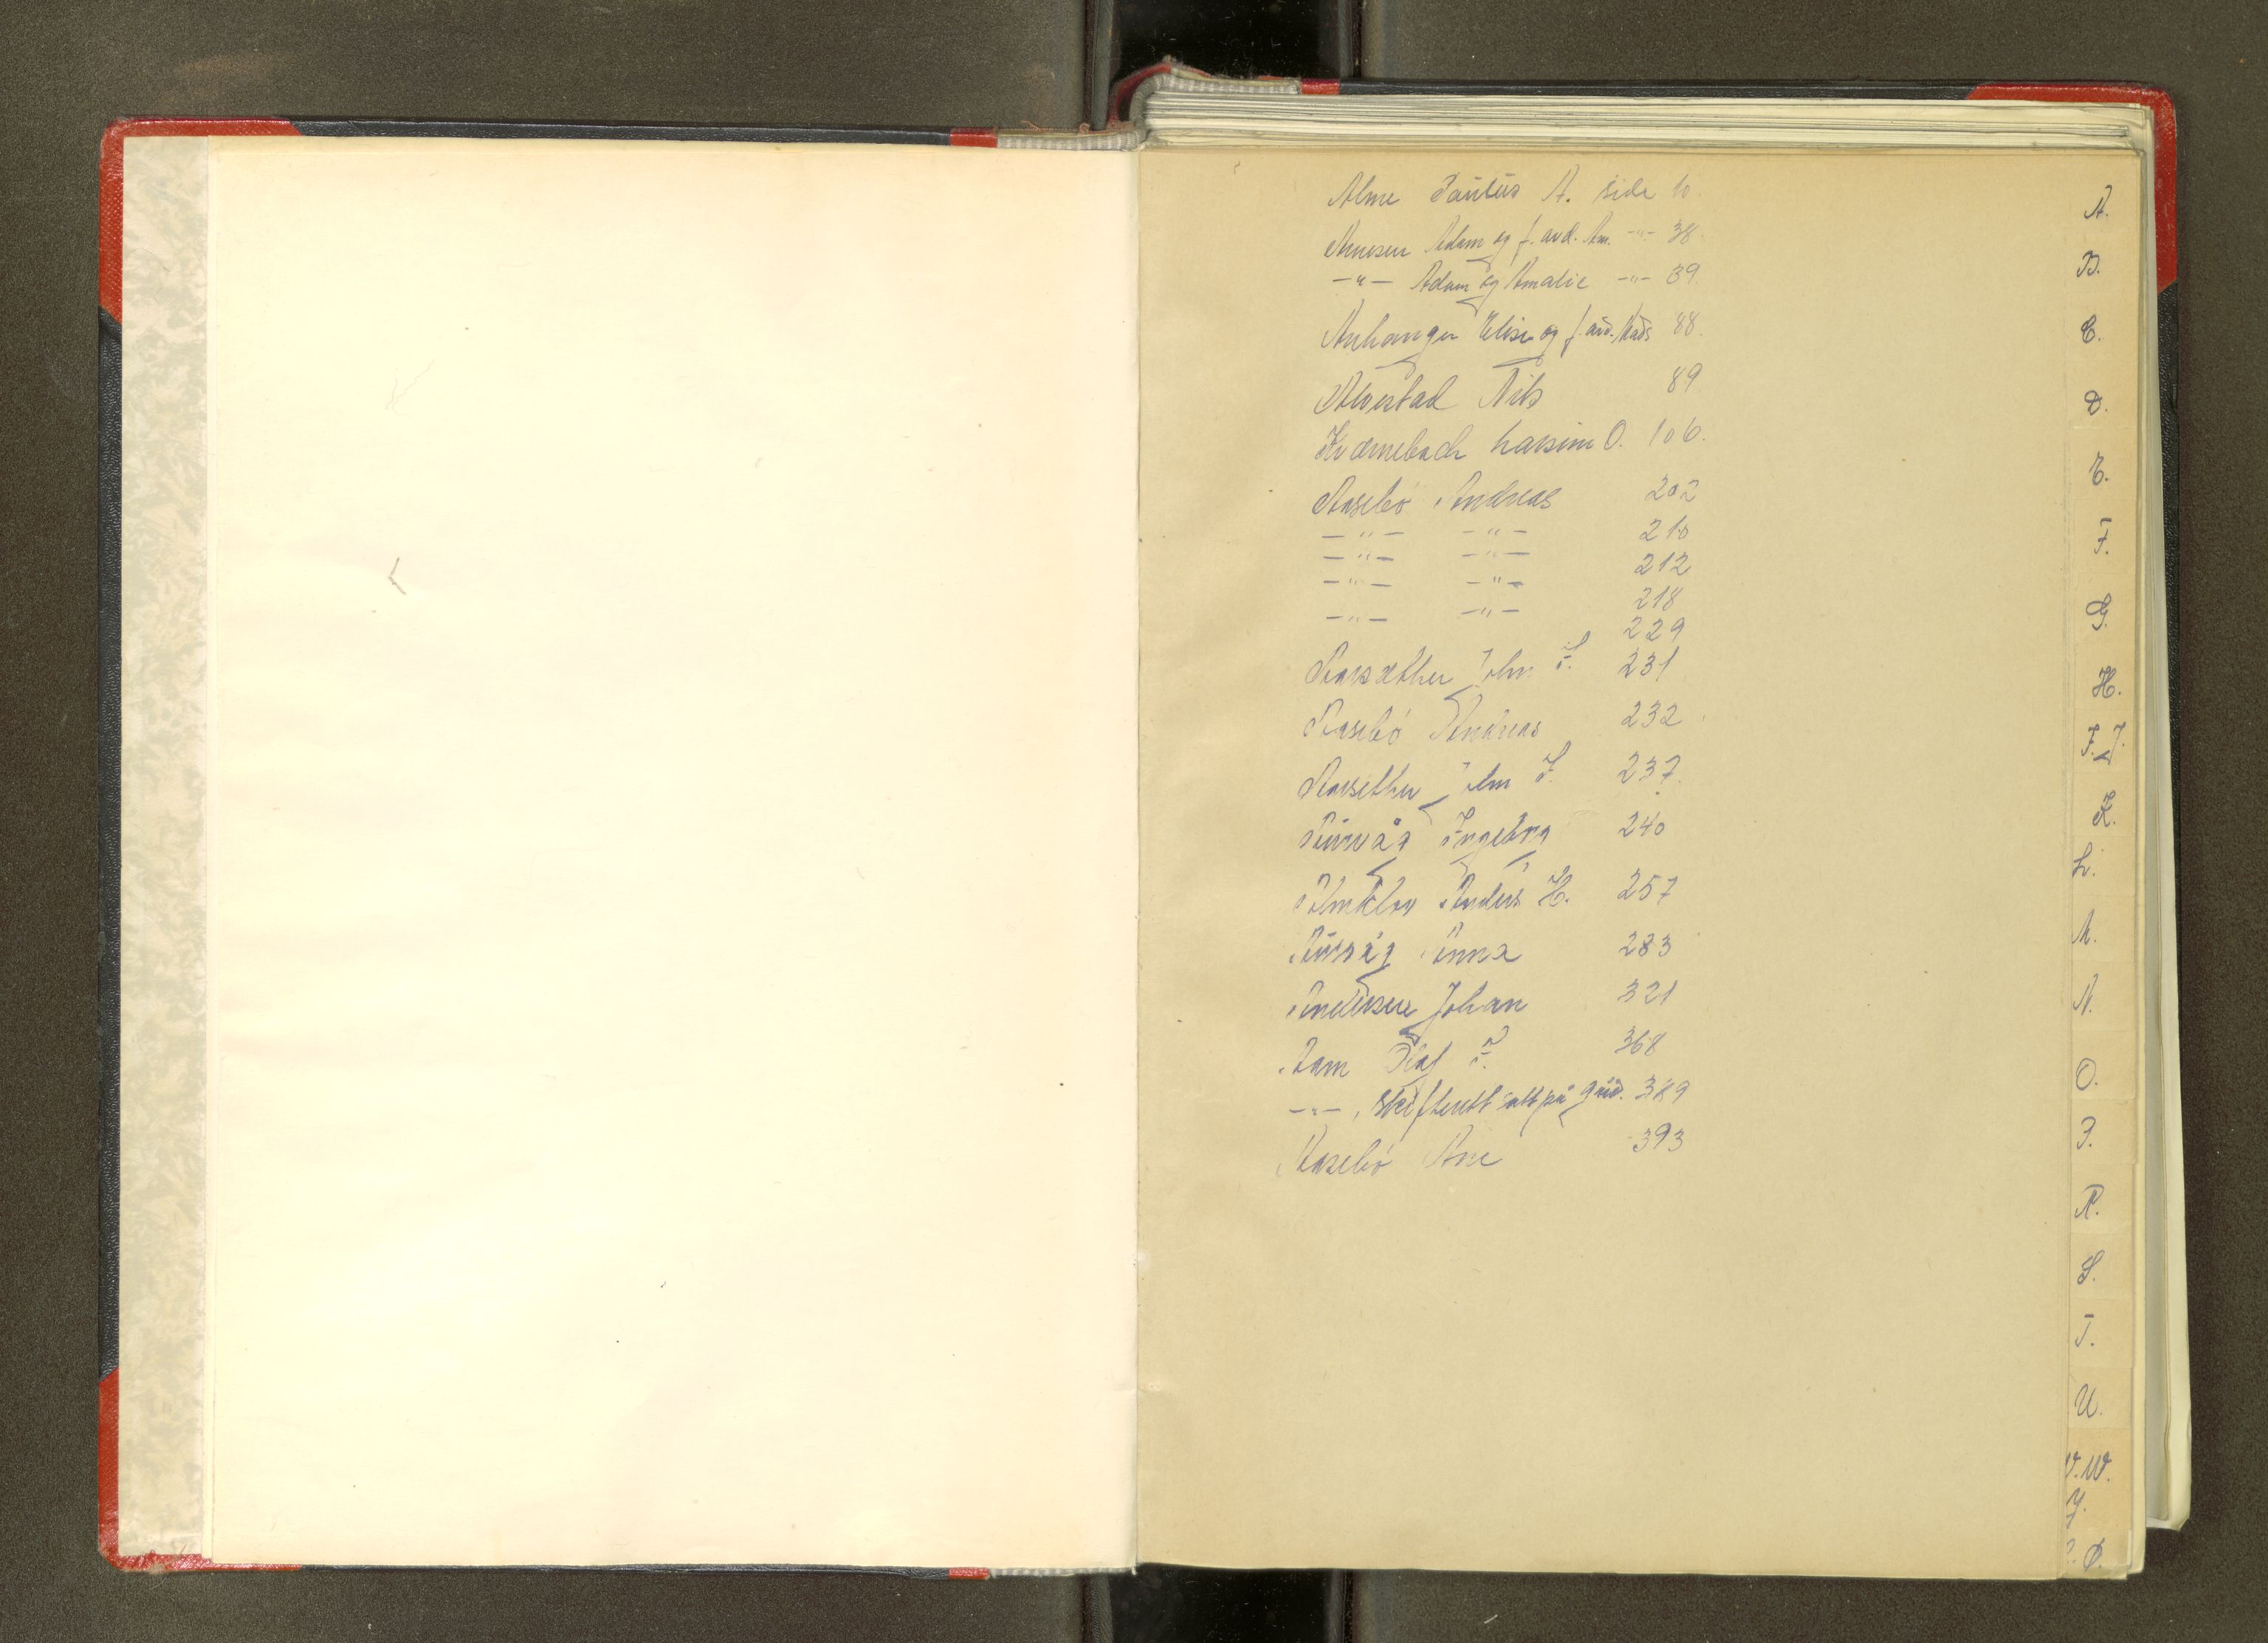 Alme Paulus A. side 10.
Arnesen Adam og f. avd. Am. -"- 38.
-"- Adam og Amalie -"- 39.
Anhanger Elise og f. avd. Mads 88.
Alvestad Nils 89
Kvernebach Larsine O. 106.
Aasebö Andreas 202
-"- -"- 210
-"- -"- 212
-"- -"- 218
-"- -"- 229
Aarsæther John I. 231
Aasebö Andreas 232
Aarsether John I. 237.
Aurvåg Ingeborg 240
Almklov Anders H. 257
Aurvåg Anna 283
Andersen Johan 321
Aam Olaf P. 368
-"-, skifterett 389
Aasebö Ane 393
A.
B.
C.
D.
E.
F.
G.
H.
I. J.
K.
L.
M.
N.
O.
P.
R.
S.
T.
U.
V. W.
Y.
Ø.